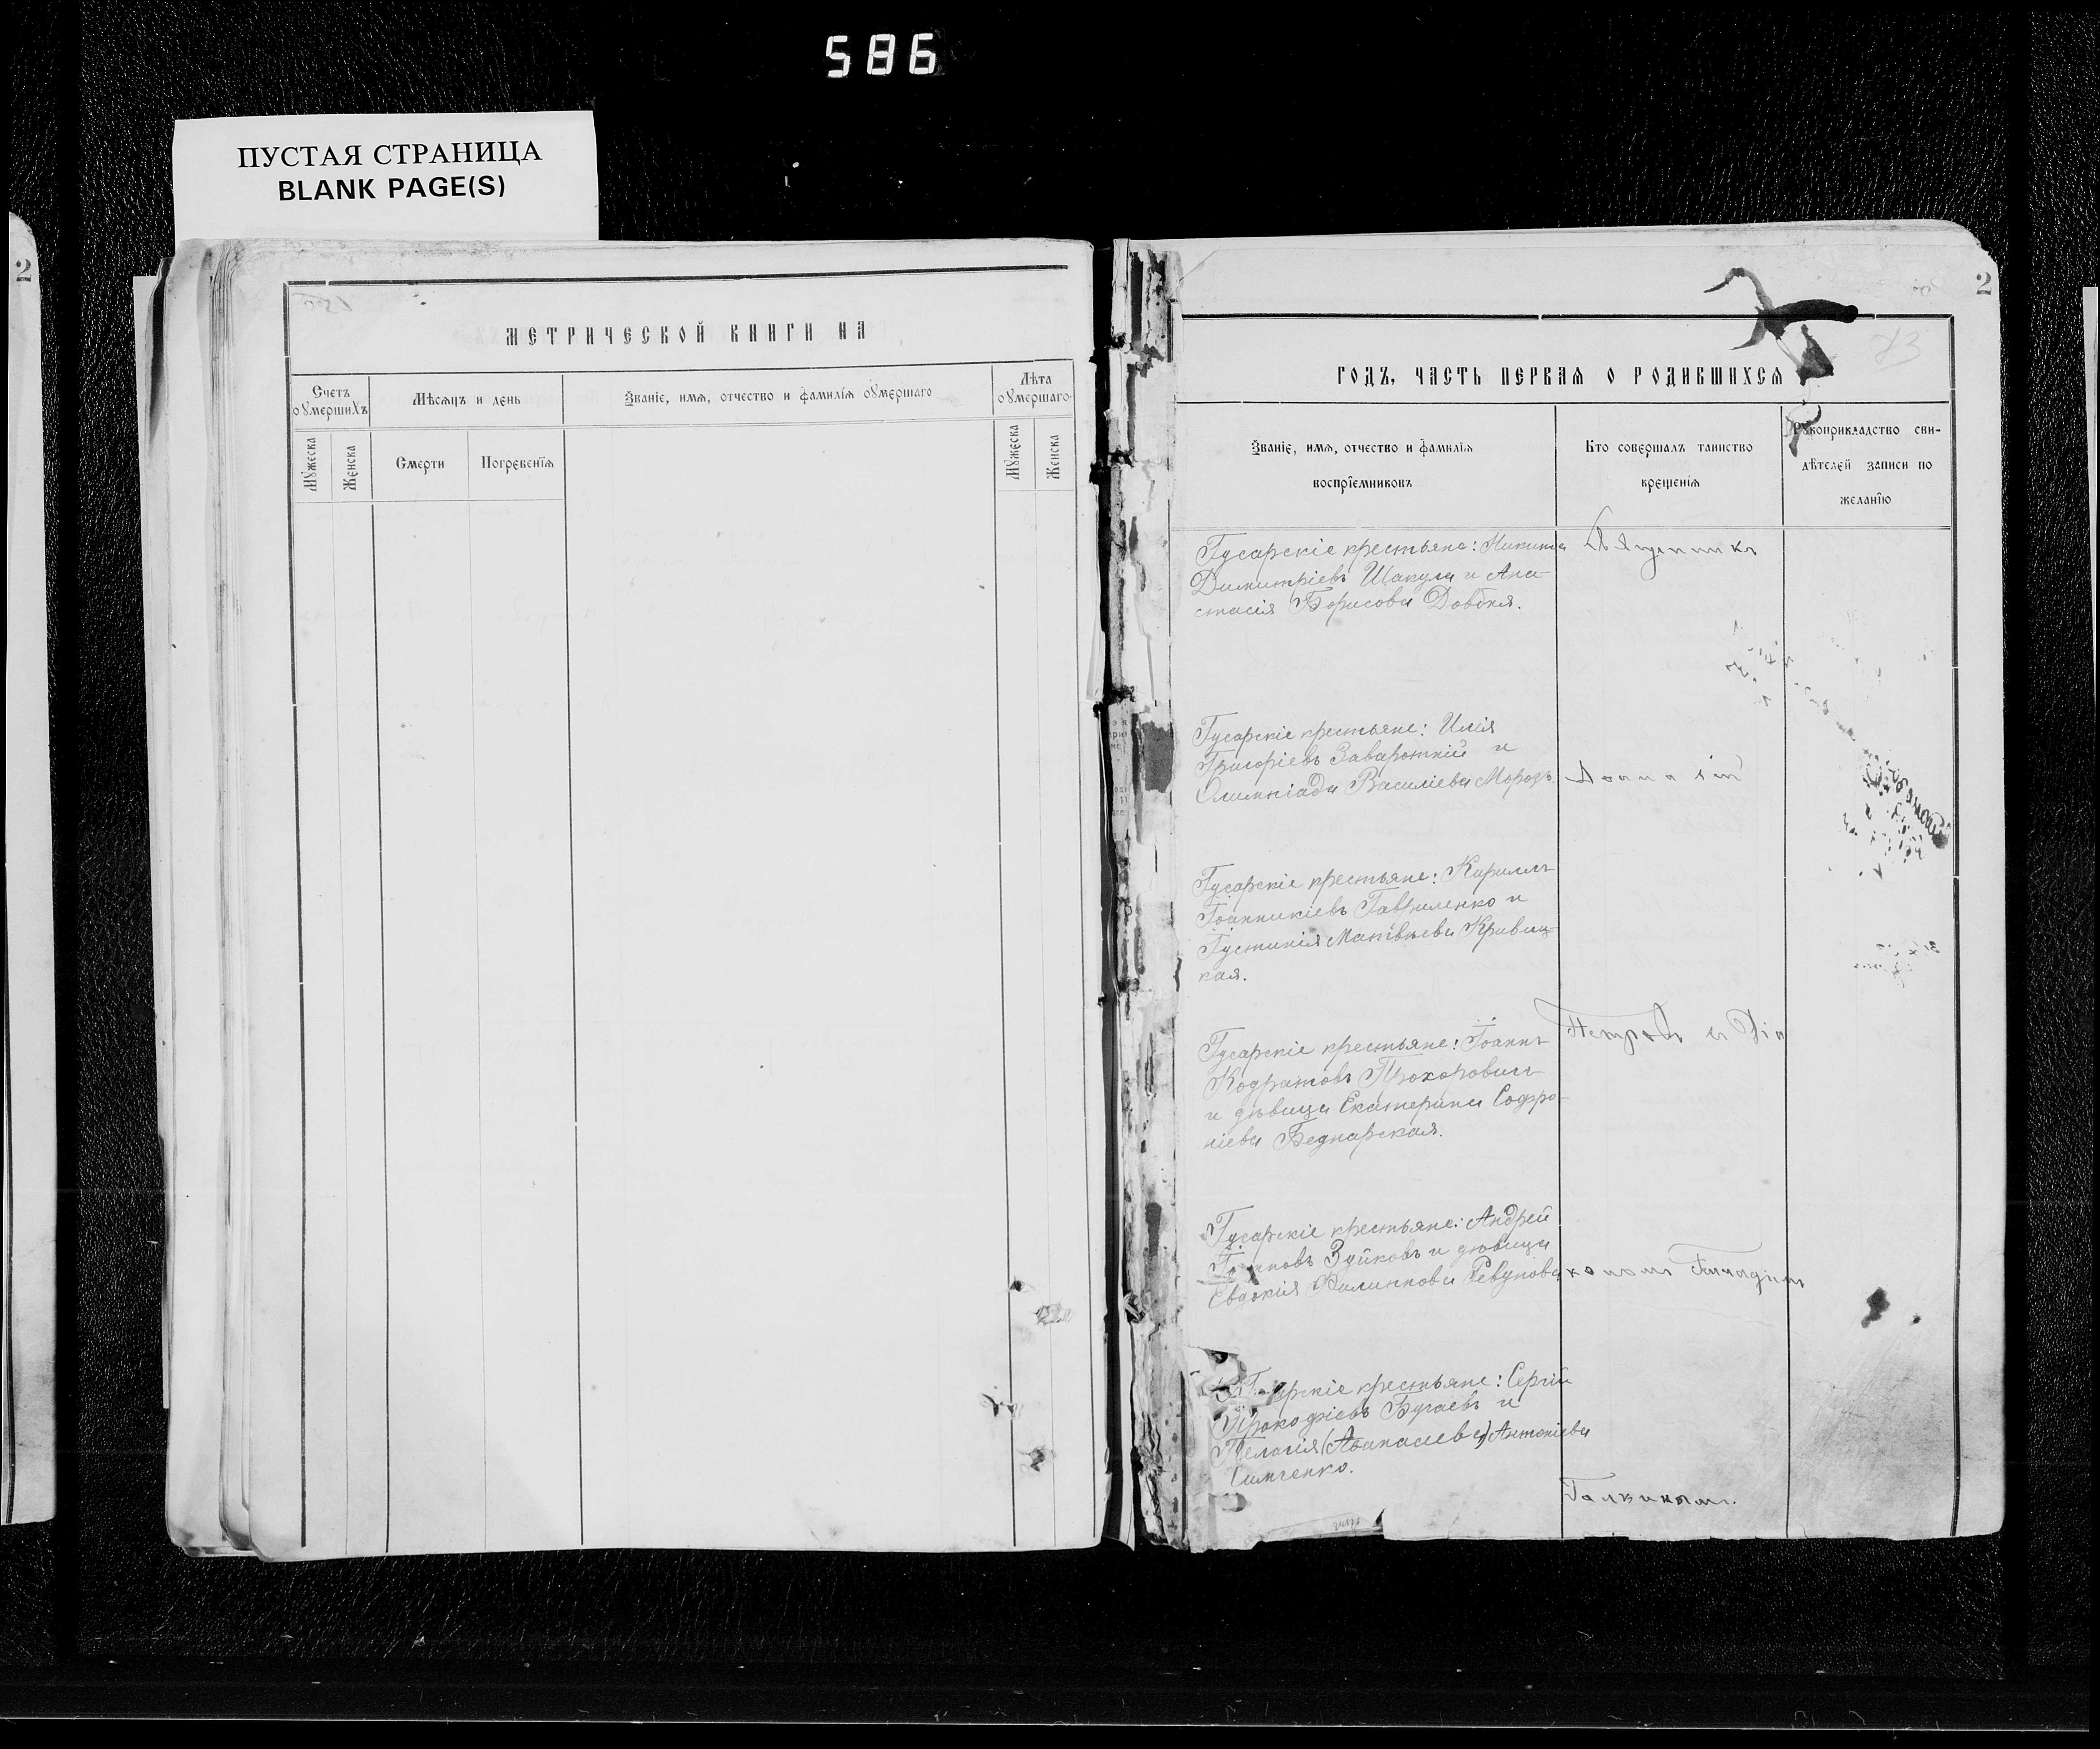 586
ПУСТАЯ СТРАНИЦА
BLANK PAGE(S)
2
МЕТРИЧЕСКОЙ КНИГИ НА
Счетъ оумершихъ
Мѣсяцъ и день
Званіе, имя, отчество и фамилія оумершаго
Лѣта оумершаго
Мужеска
Женска
Смерти
Погребенія
Мужеска
Женска
2
73
ГОДЪ, ЧАСТЬ ПЕРВАЯ О РОДИВШИХСЯ
Званіе, имя, отчество и фамилія
воспріемниковъ
Кто совершалъ таинство
крещенія
Рукоприкладство сви-
дѣтелей записи по
желанію
Гусарскіе крестьяне: Никита
Димитріевъ Щакула и Ана-
стасія Борисова Довбня.
Священникъ
Гусарскіе крестьяне: Илія
Григоріевъ Заварожній и
Олимпіада Василіева Морозъ
Гусарскіе крестьяне: Кириллъ
Іоанникіевъ Гавриленко и
Іустинія Матѳѣева Кривиц-
кая.
Гусарскіе крестьяне: Іоаннъ
Кодратовъ Прохоровичъ
и дѣвица Екатерина Софро-
ніева Беднарская.
Петровъ съ Діа
Гусарскіе крестьяне: Андрей
Іоанновъ Зуйковъ и дѣвица
Евдокія Филиппова Ревунова
кономъ Геннадіемъ
крестьяне: Сергій
Прокофіевъ Бугаевъ и
Пелагія (Аѳанасиева) Антоніева
Симченко.
Галкинымъ.